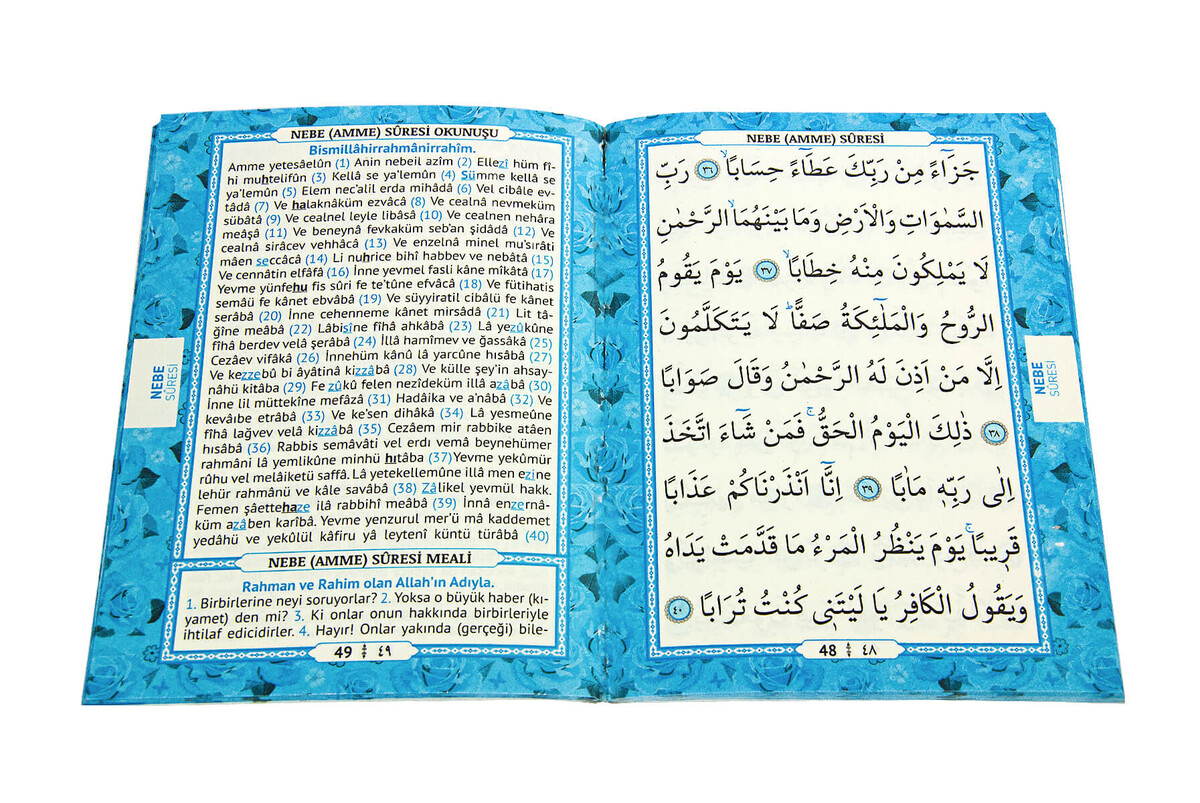 NEBE (AMME) SÛRESİ
جَزَٓاءً مِنْ رَبِّكَ عَطَٓاءً حِسَابًاۙ ﴿٣٦﴾ رَبِّ
السَّمٰوَاتِ وَالْاَرْضِ وَمَا بَيْنَهُمَا الرَّحْمٰنِ
لَا يَمْلِكُونَ مِنْهُ خِطَابًاۙ ﴿٣٧﴾ يَوْمَ يَقُومُ
الرُّوحُ وَالْمَلٰٓئِكَةُ صَفًّاۜ لَا يَتَكَلَّمُونَ
اِلَّا مَنْ اَذِنَ لَهُ الرَّحْمٰنُ وَقَالَ صَوَابًا
﴿٣٨﴾ ذٰلِكَ الْيَوْمُ الْحَقُّۚ فَمَنْ شَٓاءَ اتَّخَذَ
اِلٰى رَبِّه۪ مَاٰبًا ﴿٣٩﴾ اِنَّٓا اَنْذَرْنَاكُمْ عَذَابًا
قَر۪يبًاۚ يَوْمَ يَنْظُرُ الْمَرْءُ مَا قَدَّمَتْ يَدَاهُ
وَيَقُولُ الْكَافِرُ يَا لَيْتَن۪ي كُنْتُ تُرَابًا ﴿٤٠﴾
48 ٤٨
NEBE
SÛRESİ
NEBE (AMME) SÛRESİ OKUNUŞU
Bismillâhirrahmânirrahîm.
Amme yetesâelûn (1) Anin nebeil azîm (2) Ellezî hüm fî-
hi muhtelifûn (3) Kellâ se ya'lemûn (4) Sümme kellâ se
ya'lemûn (5) Elem nec'alil erda mihâdâ (6) Vel cibâle ev-
tâdâ (7) Ve halaknâküm ezvâcâ (8) Ve cealnâ nevmeküm
sübâtâ (9) Ve cealnel leyle libâsâ (10) Ve cealnen nehâra
meâşâ (11) Ve beneynâ fevkaküm seb'an şidâdâ (12) Ve
cealnâ sirâcev vehhâcâ (13) Ve enzelnâ minel mu'sırâti
mâen seccâcâ (14) Li nuhrice bihî habbev ve nebâtâ (15)
Ve cennâtin elfâfâ (16) İnne yevmel fasli kâne mîkâtâ (17)
Yevme yünfehu fis sûri fe te'tûne efvâcâ (18) Ve fütihatis
semâü fe kânet ebvâbâ (19) Ve süyyiratil cibâlü fe kânet
serâbâ (20) İnne cehenneme kânet mirsâdâ (21) Lit tâ-
ğîne meâbâ (22) Lâbisîne fîhâ ahkâbâ (23) Lâ yezûkûne
fîhâ berdev velâ şerâbâ (24) İllâ hamîmev ve ğassâkâ (25)
Cezâev vifâkâ (26) İnnehüm kânû lâ yarcûne hısâbâ (27)
Ve kezzebû bi âyâtinâ kizzâbâ (28) Ve külle şey'in ahsay-
nâhü kitâba (29) Fe zûkû felen nezîdeküm illâ azâbâ (30)
İnne lil müttekîne mefâzâ (31) Hadâika ve a'nâbâ (32) Ve
kevâıbe etrâbâ (33) Ve ke'sen dihâkâ (34) Lâ yesmeûne
fîhâ lağvev velâ kizzâbâ (35) Cezâem mir rabbike atâen
hısâbâ (36) Rabbis semâvâti vel erdı vemâ beynehümer
rahmâni lâ yemlikûne minhü hıtâba (37)Yevme yekûmür
rûhu vel melâiketü saffâ. Lâ yetekellemûne illâ men ezine
lehür rahmânü ve kâle savâbâ (38) Zâlikel yevmül hakk.
Femen şâettehaze ilâ rabbihî meâbâ (39) İnnâ enzernâ-
küm azâben karîbâ. Yevme yenzurul mer'ü mâ kaddemet
yedâhü ve yekûlül kâfiru yâ leytenî küntü türâbâ (40)
NEBE (AMME) SÛRESİ MEALİ
Rahman ve Rahim olan Allah'ın Adıyla.
1. Birbirlerine neyi soruyorlar? 2. Yoksa o büyük haber (kı-
yamet) den mi? 3. Ki onlar onun hakkında birbirleriyle
ihtilaf edicidirler. 4. Hayır! Onlar yakında (gerçeği) bile-
49 ٤٩
NEBE
SÛRESİ